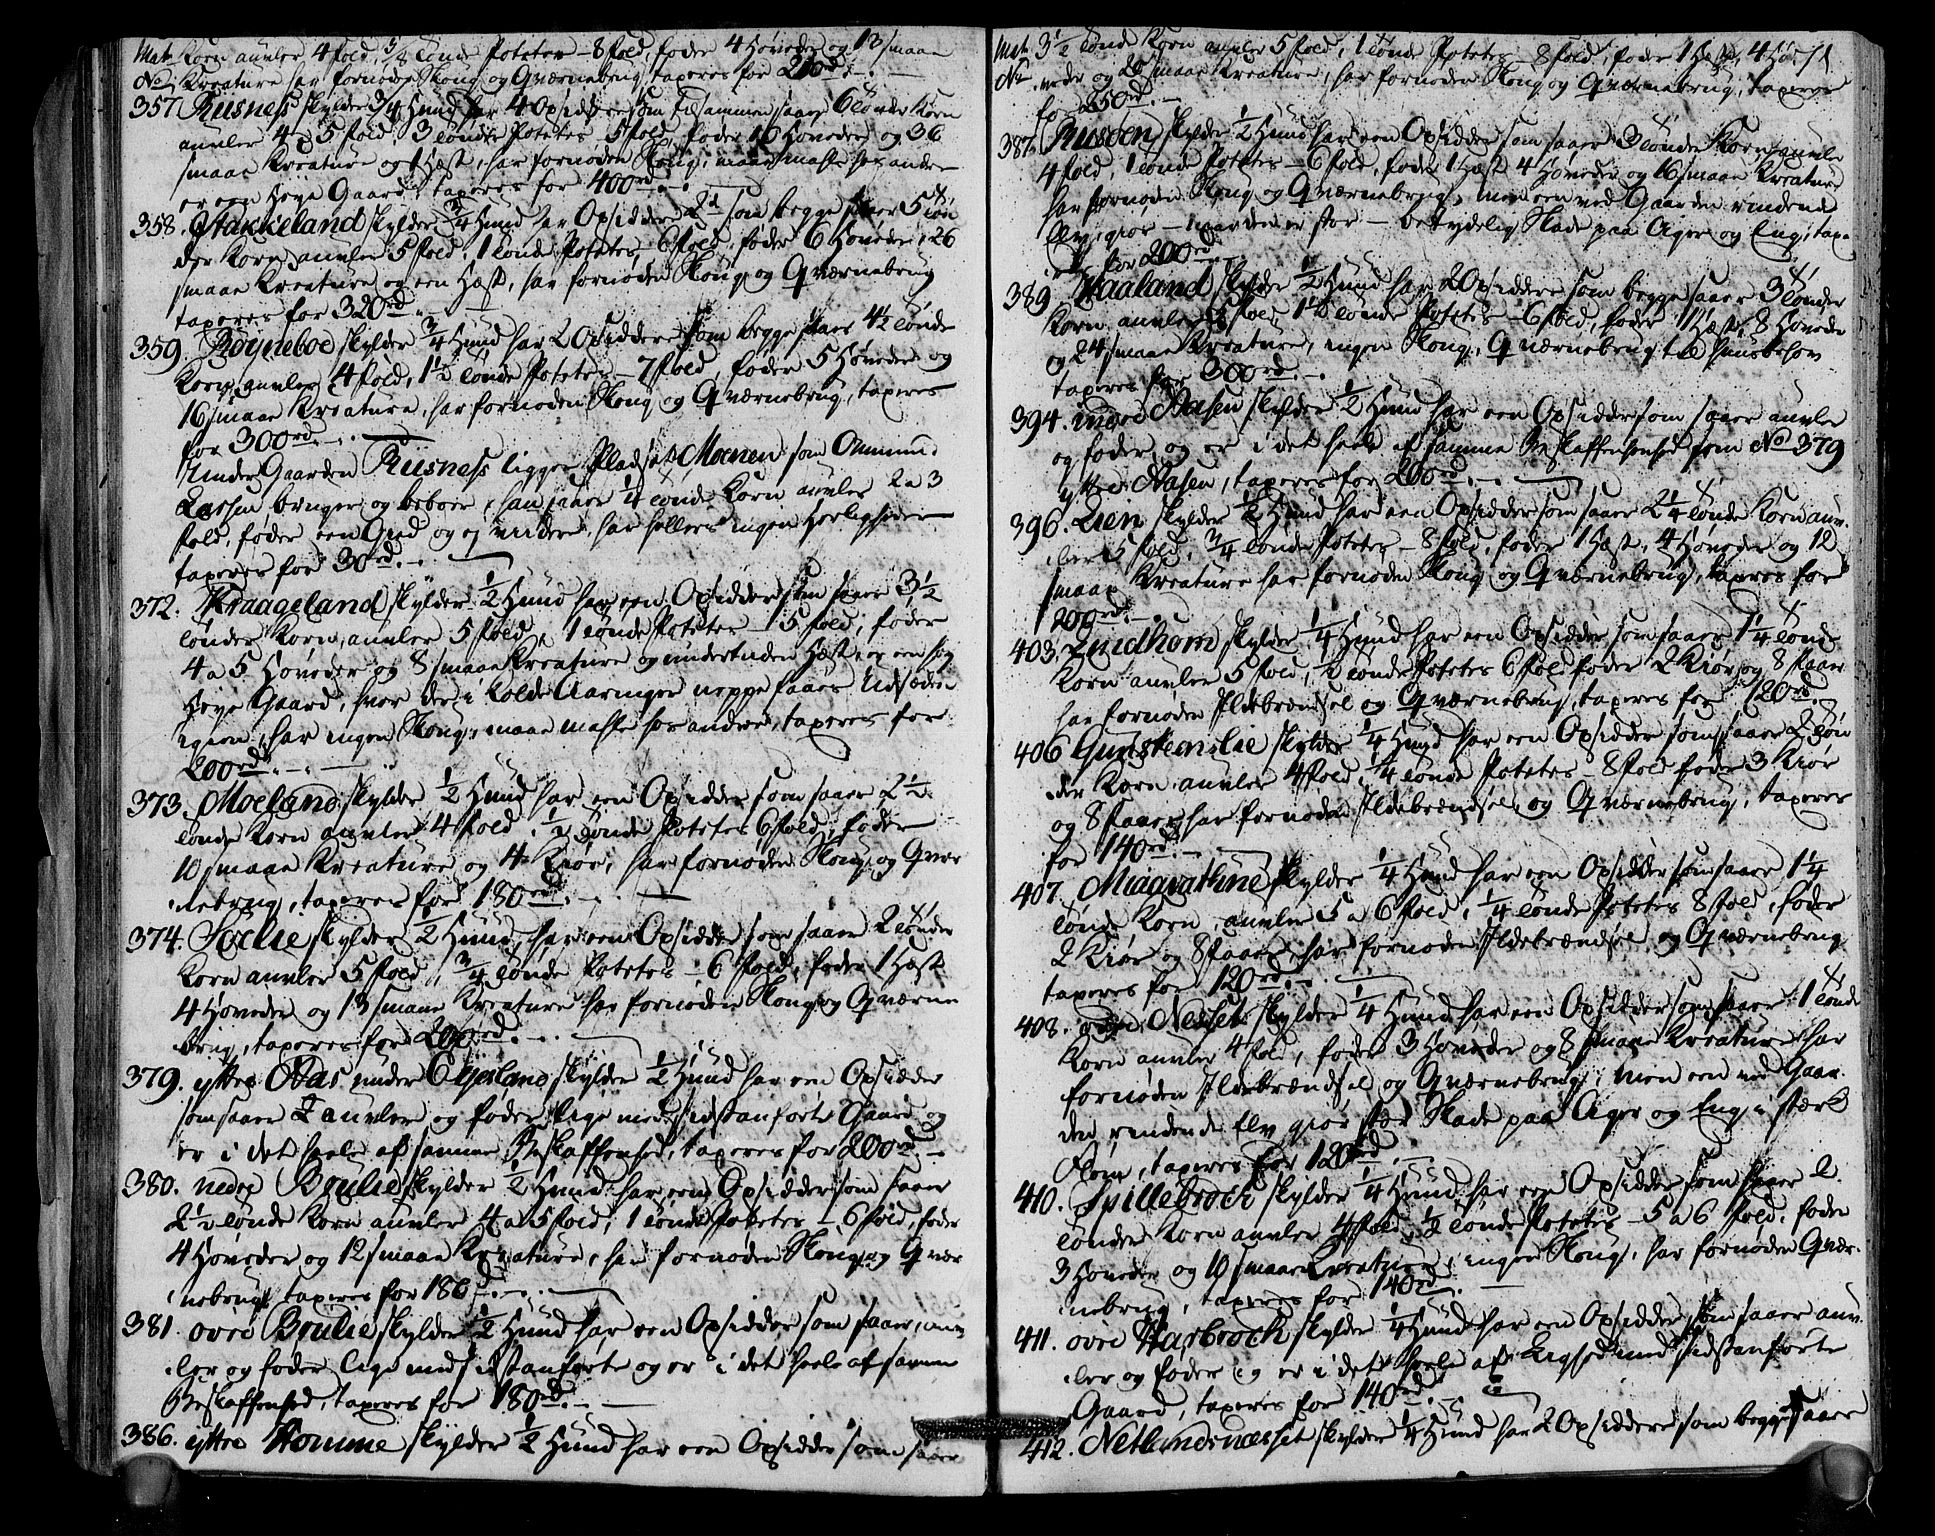 Mat Korn auvler 4 fold, 3/8 tønde Poteter – 8 fold, føder 4 Høveder og 13 smaae
No Kreature har fornøden Skoug og Qværnebrug, taxeres for 210 rd.
357. Rusness skylder 3/4 Hund har 4 Opsiddere som tilsammen saaer 6 tønder Korn
auvler 4 a 5 fold, 3 tønder Poteter 5 fold, føder 16 Høveder og 36
smaae Kreature og 1 Hæst, har fornøden Skoug, maae mahle hos andre
er een Høye Gaard taxeres for 400 rd.
358. Stakkeland skylder 3/4 Hund har Opsiddere 2d som begge saaer 5 tøn
der Korn auvler 5 fold, 1 tønde Poteter 6 fold, føder 6 Høveder, 26
smaae Kreature og een Hæst, har fornøden Skoug og Qværnebrug
taxeres for 320 rd.
359. Røyneboe skylder 3/4 Hund har 2 Opsiddere som begge saaer 4½ tønde
Korn auvler 4 fold, 1½ tønde Poteter – 7 fold, føder 5 Høveder og
16 smaae Kreature, har fornøden Skoug og Qværnebrug, taxeres
for 300 rd.
Under Gaarden Rusness ligger Pladsen Moenen som Ommund
Larsen bruger og beboer, han saaer ¼ tønde Korn auvler 2 a 3
fold, føder een Gied og ej videre, har hellers ingen Herligheder
taxeres for 30 rd.
372. Kraageland skylder ½ Hund har een Opsidder som saaer 3½
tønder Korn, auvler 5 fold, 1 tønde Poteter – 5 fold, føder
4 a 5 Høveder og 8 smaae Kreature og undertiden Hæst, er een høy
Høye Gaard, hvor der i kolde Aaringer neppe faaes Udsæden
igien, har ingen Skoug, maae mahle hos andre, taxeres for
200 rd.
373. Moeland skylder ½ Hund har een Opsidder som saaer 2½
tønde Korn auvler 4 fold, ½ tønde Poteter 6 fold, føder
10 smaae Kreature og 4 Kiør, har fornøden Skoug og Qvær
nebrug, taxeres for 180 rd.
374. Soelie skylder ½ Hund, har een Opsidder som saaer 2 tønder
Korn auvler 5 fold, 3/4 tønde Poteter – 6 fold, føder 1 Hæst
4 Høveder og 13 smaae Kreature har fornøden Skoug og Qværne
brug, taxeres for 200 rd.
379. yttre Aas under Egeland skylder ½ Hund har een Opsidder
som saaer auvler og føder lige med sidstanførte Gaard og
er i det heele af samme Beskaffenhed, taxeres for 200 rd.
380. nedre Boulie skylder ½ Hund har een Opsidder som saaer
2½ tønde Korn auvler 4 a 5 fold, 1 tønde Poteter – 6 fold, føder
4 Høveder og 12 smaae Kreature, har fornøden Skoug og Qvær
nebrug, taxeres for 180 rd.
381. øvre Boulie skylder ½ Hund har een Opsidder som saaer, auv
ler og føder lige med sidstanførte og er i det heele af samme
Beskaffenhed, taxeres for 180 rd.
386. yttre Homme skylder ½ Hund har een Opsidder som saaer
71
Mat 3½ tønde Korn auvler 5 fold, 1 tønde Poteter 8 fold, føder 1 Hæst, 4 Hø
No veder og 20 smaae Kreature, har fornøden Skoug og Qværnebrug, taxeres
for 250 rd.
387. Rusden skylder ½ Hund har een Opsidder som saaer 3 tønde Korn auvler
4 fold, 1 tønde Poteter – 6 fold, føder 1 Hæst 4 Høveder og 16 smaae Kreature
har fornøden Skoug og Qværnebrug, men een ved Gaarden rindende
Elv, giør – naar den er stor – betydelig Skade paa Ager og Eng, taxe
res for 200 rd.
389. Haaland skylder ½ Hund har 2 Opsiddere som begge saaer 3 tønder
Korn auvler fold, 1½ tønde Poteter – 6 fold, føder 1 Hæst, 8 Høveder
og 24 smaae Kreature, ingen Skoug, Qværnebrug til huusbehov
taxeres for 300 rd.
394. indre Aasen skylder ½ Hund har een Opsidder som saaer auvler
og føder, og er i det heele af samme Beskaffenhed som No 379
yttre Aasen, taxeres for 200 rd.
396. Lien skylder ½ Hund har een Opsidder som saaer 2¼ tønde Korn auv
ler 5 fold, 3/4 tønde Poteter – 8 fold, føder 1 Hæst, 4 Høveder og 12
smaae Kreature har fornøden Skoug og Qværnebrug, taxeres for
200 rd.
403. Lindhom skylder ¼ Hund har een Opsidder som saaer 1¼ tønde
Korn auvler 5 fold, ½ tønde Poteter 6 fold føder 2 Kiør og 8 Faar
har fornøden Ildebrændsel og Qværnebrug, taxeres for 120 rd.
406. Gunstenslie skylder ¼ Hund har een Opsidder som saaer 2 tøn
der Korn auvler 4 fold, ¼ tønde Poteter – 8 fold føder 3 Kiør
og 8 Faar, har fornøden Ildebrændsel og Qværnebrug, taxeres
for 140 rd.
407. Miaavathne skylder ¼ Hund har een Opsidder som saaer 1¼
tønde Korn, auvler 5 a 6 fold, ¼ tønde Poteter 8 fold, føder
2 Kiør og 8 Faar, har fornøden Ildebrændsel og Qværnebrug
taxeres for 120 rd.
408. øvre Nesset skylder ¼ Hund har een Opsidder som saaer 1 tønde
Korn auvler 4 fold, føder 3 Høveder og 8 smaae Kreature har
fornøden Ildebrændsel og Qværnebrug, men een ved Gaar
den rindende Elv giør stor Skade paa Ager og Eng i stærk
Flom, taxeres for 120 rd.
410. Spillebroch skylder ¼ Hund har een Opsidder som saaer 2
tønder Korn auvler 4 fold, ½ tønde Poteter – 5 a 6 fold, føder
3 Høveder og 10 smaae Kreature, ingen Skoug, har fornøden Qvær
nebrug, taxeres for 140 rd.
411. øvre Harbroch skylder ¼ Hund har een Opsidder som saaer auv
ler og føder og er i det heele af Liighed med sidstanførte
Gaard, taxeres for 140 rd.
412. Netlandsnæsset skylder ¼ Hund har 2 Opsiddere som begge saaer